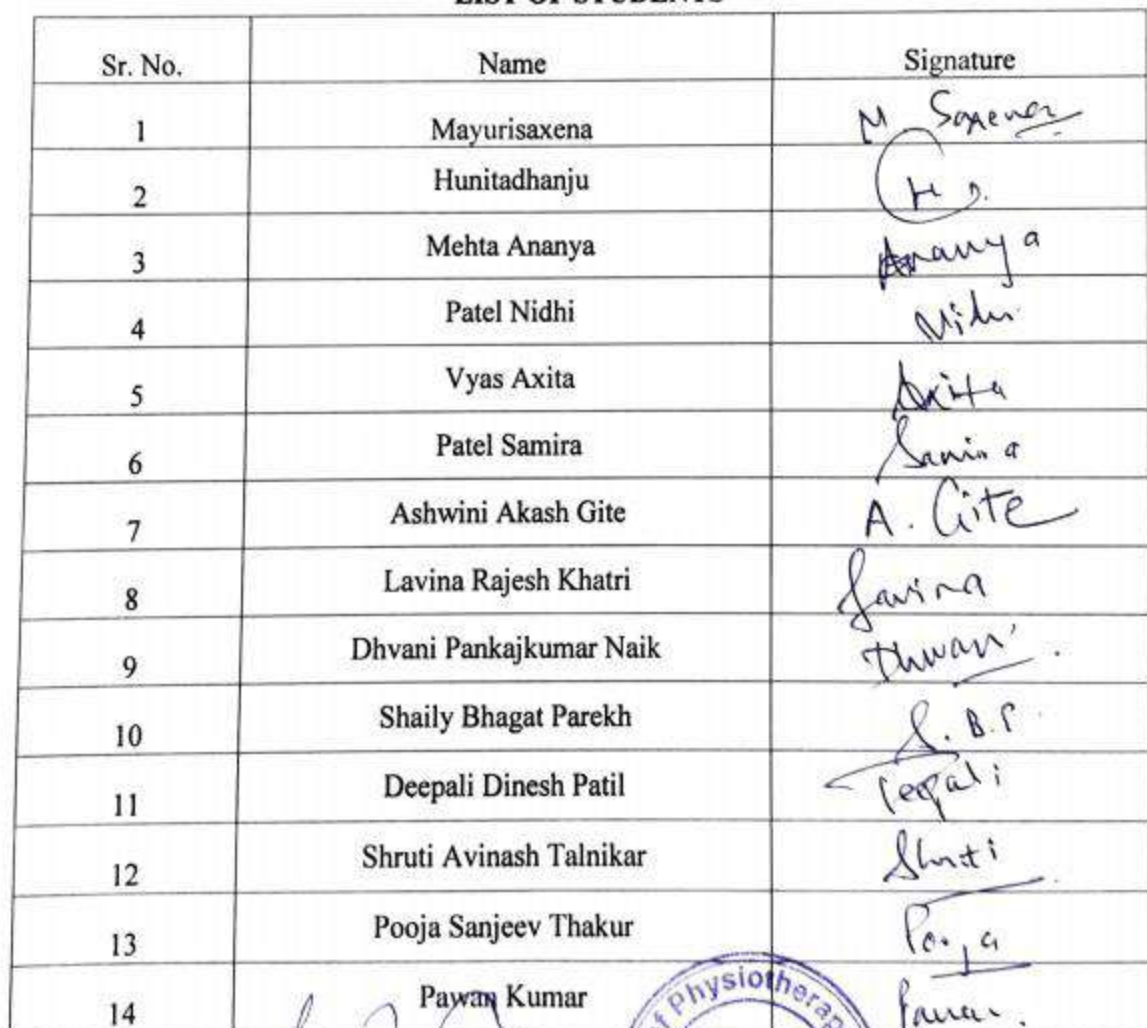 LIST OF STUDENTS
Sr. No. Name Signature
1 Mayurisaxena M Saxena
2 Hunitadhanju H D.
3 Mehta Ananya Ananya
4 Patel Nidhi Nidhi
5 Vyas Axita Axita
6 Patel Samira Samira
7 Ashwini Akash Gite A. Gite
8 Lavina Rajesh Khatri Lavina
9 Dhvani Pankajkumar Naik Dhwani
10 Shaily Bhagat Parekh S. B. P.
11 Deepali Dinesh Patil Deepali
12 Shruti Avinash Talnikar Shruti
13 Pooja Sanjeev Thakur Pooja
14 Pawan Kumar Pawan
of Physiotherap